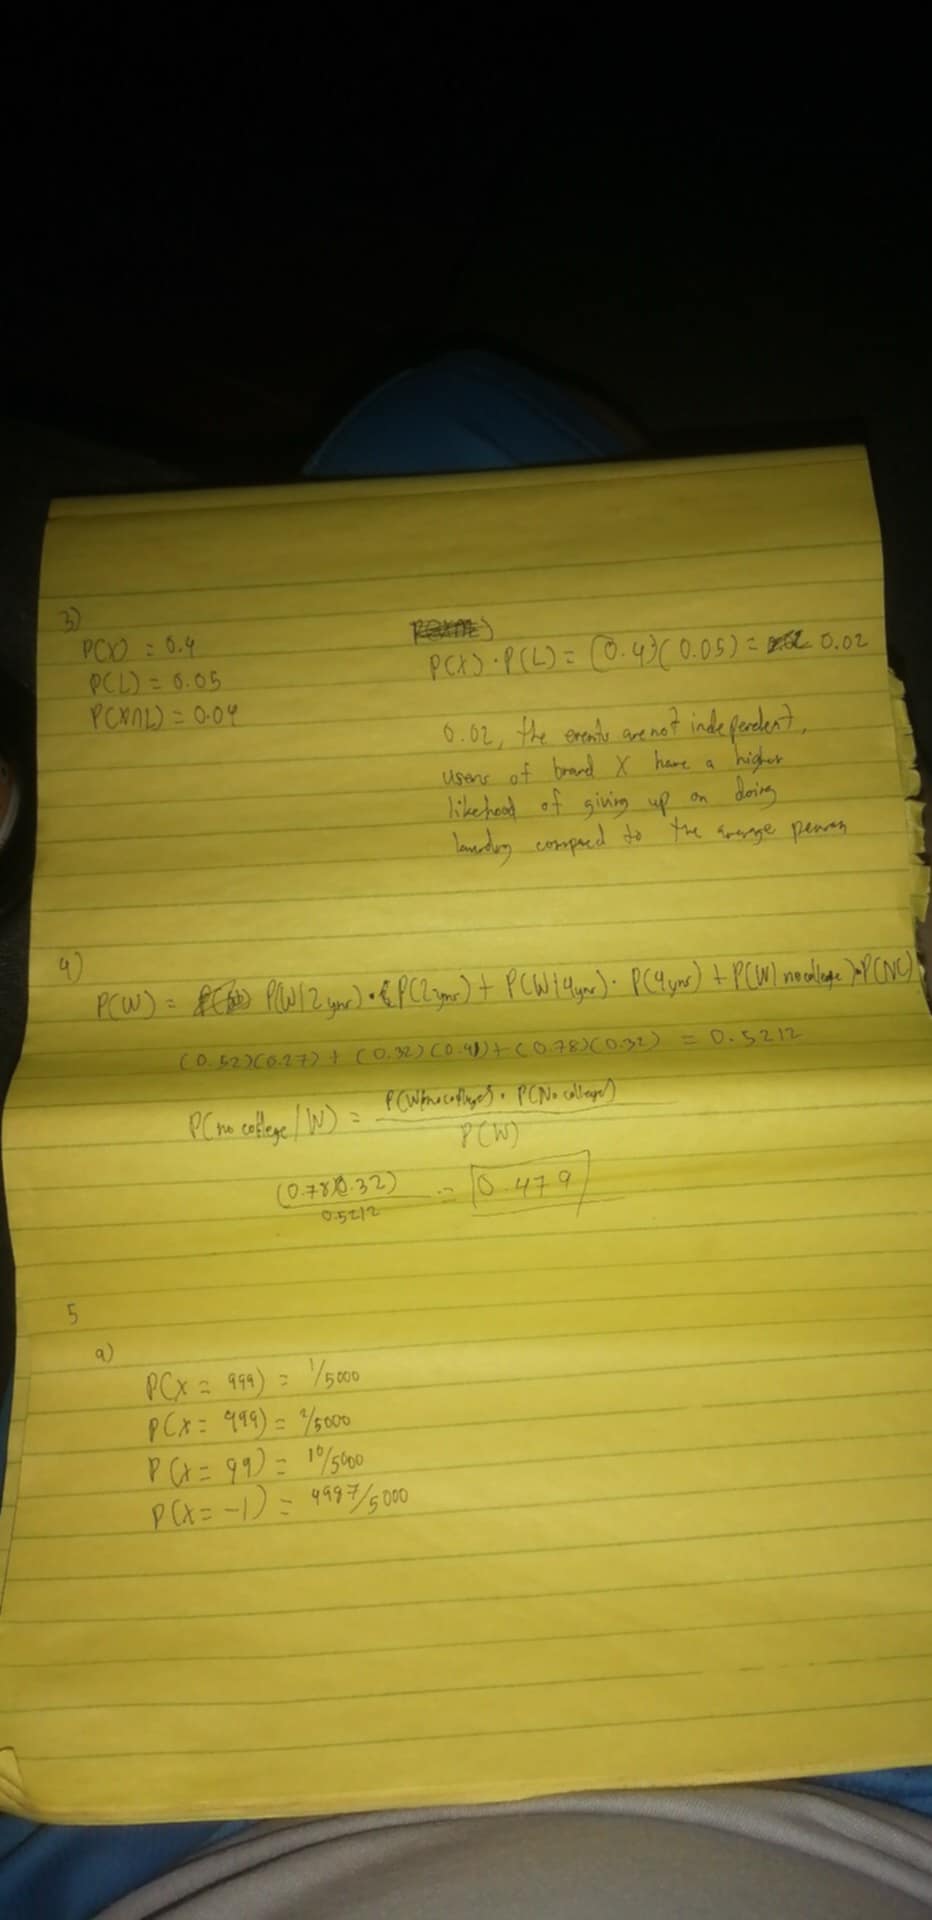 3)
P(X) = 0.4
P(L) = 0.05
P(X∩L) = 0.04
P(X) · P(L) = (0.4)(0.05) = 0.02
0.02, the events are not independent,
users of brand X have a higher
likehood of giving up on doing
laundry compared to the average person
4)
P(W) = P(W|2 year) · P(2 year) + P(W|4year) · P(4year) + P(W|no college) · P(NC)
(0.52)(0.27) + (0.32)(0.41) + (0.78)(0.32) = 0.5212
P(no college/W) = P(W|no college) · P(No college)
P(W)
(0.78)(0.32) = 0.479
0.5212
5
a)
P(X = 999) = 1/5000
P(X = 499) = 2/5000
P(X = 99) = 10/5000
P(X = -1) = 4987/5000